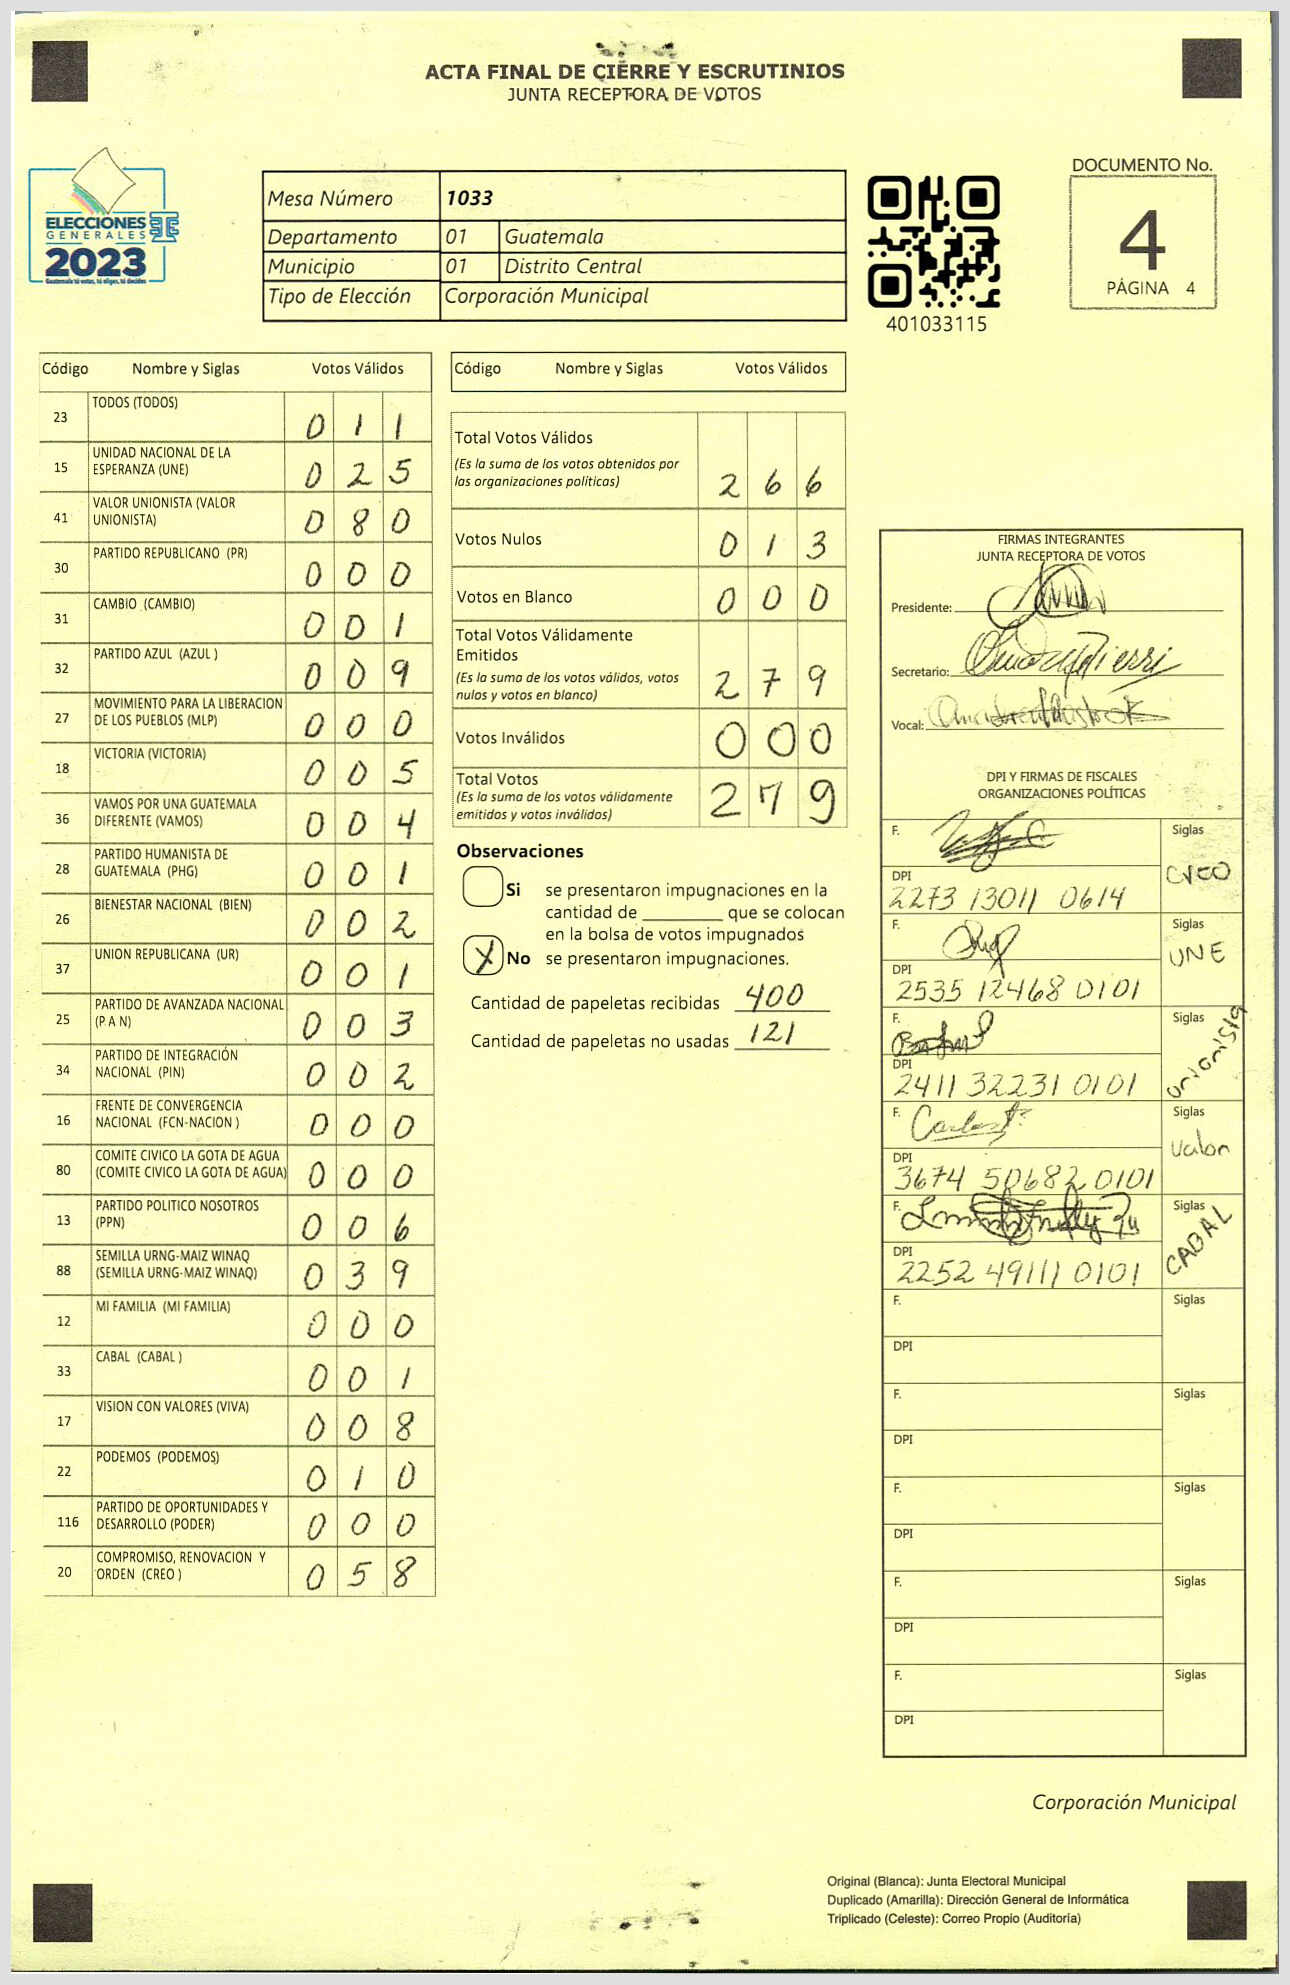 ACTA FINAL DE CIERRE Y ESCRUTINIOS
JUNTA RECEPTORA DE VOTOS
ELECCIONES
GENERALES
2023
Guatemala tú votas, tú eliges, tú decides
Mesa Número 1033
Departamento 01 Guatemala
Municipio 01 Distrito Central
Tipo de Elección Corporación Municipal
401033115
DOCUMENTO No.
4
PÁGINA 4
Código Nombre y Siglas Votos Válidos
23 TODOS (TODOS) 0 1 1
15 UNIDAD NACIONAL DE LA
ESPERANZA (UNE) 0 2 5
41 VALOR UNIONISTA (VALOR
UNIONISTA) 0 8 0
30 PARTIDO REPUBLICANO (PR) 0 0 0
31 CAMBIO (CAMBIO) 0 0 1
32 PARTIDO AZUL (AZUL ) 0 0 9
27 MOVIMIENTO PARA LA LIBERACION
DE LOS PUEBLOS (MLP) 0 0 0
18 VICTORIA (VICTORIA) 0 0 5
36 VAMOS POR UNA GUATEMALA
DIFERENTE (VAMOS) 0 0 4
28 PARTIDO HUMANISTA DE
GUATEMALA (PHG) 0 0 1
26 BIENESTAR NACIONAL (BIEN) 0 0 2
37 UNION REPUBLICANA (UR) 0 0 1
25 PARTIDO DE AVANZADA NACIONAL
(P A N) 0 0 3
34 PARTIDO DE INTEGRACIÓN
NACIONAL (PIN) 0 0 2
16 FRENTE DE CONVERGENCIA
NACIONAL (FCN-NACION ) 0 0 0
80 COMITE CIVICO LA GOTA DE AGUA
(COMITE CIVICO LA GOTA DE AGUA) 0 0 0
13 PARTIDO POLITICO NOSOTROS
(PPN) 0 0 6
88 SEMILLA URNG-MAIZ WINAQ
(SEMILLA URNG-MAIZ WINAQ) 0 3 9
12 MI FAMILIA (MI FAMILIA) 0 0 0
33 CABAL (CABAL ) 0 0 1
17 VISION CON VALORES (VIVA) 0 0 8
22 PODEMOS (PODEMOS) 0 1 0
116 PARTIDO DE OPORTUNIDADES Y
DESARROLLO (PODER) 0 0 0
20 COMPROMISO, RENOVACION Y
ORDEN (CREO ) 0 5 8
Código Nombre y Siglas Votos Válidos
Total Votos Válidos
(Es la suma de los votos obtenidos por
las organizaciones políticas) 2 6 6
Votos Nulos 0 1 3
Votos en Blanco 0 0 0
Total Votos Válidamente
Emitidos
(Es la suma de los votos válidos, votos
nulos y votos en blanco) 2 7 9
Votos Inválidos 0 0 0
Total Votos
(Es la suma de los votos válidamente
emitidos y votos inválidos) 2 7 9
Observaciones
Si se presentaron impugnaciones en la
cantidad de ________ que se colocan
en la bolsa de votos impugnados
X No se presentaron impugnaciones.
Cantidad de papeletas recibidas 400
Cantidad de papeletas no usadas 121
FIRMAS INTEGRANTES
JUNTA RECEPTORA DE VOTOS
Presidente:
Secretario:
Vocal:
DPI Y FIRMAS DE FISCALES
ORGANIZACIONES POLÍTICAS
F. Siglas
CREO
DPI
2273 13011 0614
F. Siglas
UNE
DPI
2535 12468 0101
F. Siglas
unionista
DPI
2411 32231 0101
F. Siglas
Valor
DPI
3674 50682 0101
F. Siglas
CABAL
DPI
2252 49111 0101
F. Siglas
DPI
F. Siglas
DPI
F. Siglas
DPI
F. Siglas
DPI
F. Siglas
DPI
Corporación Municipal
Original (Blanca): Junta Electoral Municipal
Duplicado (Amarilla): Dirección General de Informática
Triplicado (Celeste): Correo Propio (Auditoría)